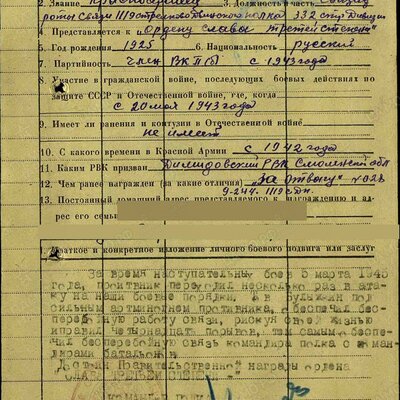 2. Звание красноармеец 3. Должность, часть
роты связи 1119 стрелкового полка 332 стр. дивизии
4. Представляется к "Ордену славы третьей степени"
5. Год рождения 1925 6. Национальность русский
7. Партийность член ВКП(б) с 1943 года
8. Участие в гражданской войне, последующих боевых действиях по
защите СССР и Отечественной войне, где, когда
с 20 мая 1943 года
9. Имеет ли ранения и контузии в Отечественной войне
не имеет
10. С какого времени в Красной Армии с 1942 года
11. Каким РВК призван Демидовский РВК Смоленской обл
12. Чем ранее награжден (за какие отличия) "За отвагу"
13. Постоянный домашний адрес представляемого к награждению и ад-
рес его семьи
Краткое и конкретное изложение личного боевого подвига или заслуг
За время наступательных боев 5 марта 1945
года, противник переходил несколько раз в ата-
ку на наши боевые порядки, а в Булыжин под
сильным артминогнем противника, обеспечил бес-
перебойную работу связи, рискуя своей жизнью
исправил четырнадцать порывов, тем самым обеспе-
чил бесперебойную связь командира полка с коман-
дирами батальонов.
Достоин Правительственной награды ордена
"СЛАВА ТРЕТЬЕЙ СТЕПЕНИ"
КОМАНДИР ПОЛКА